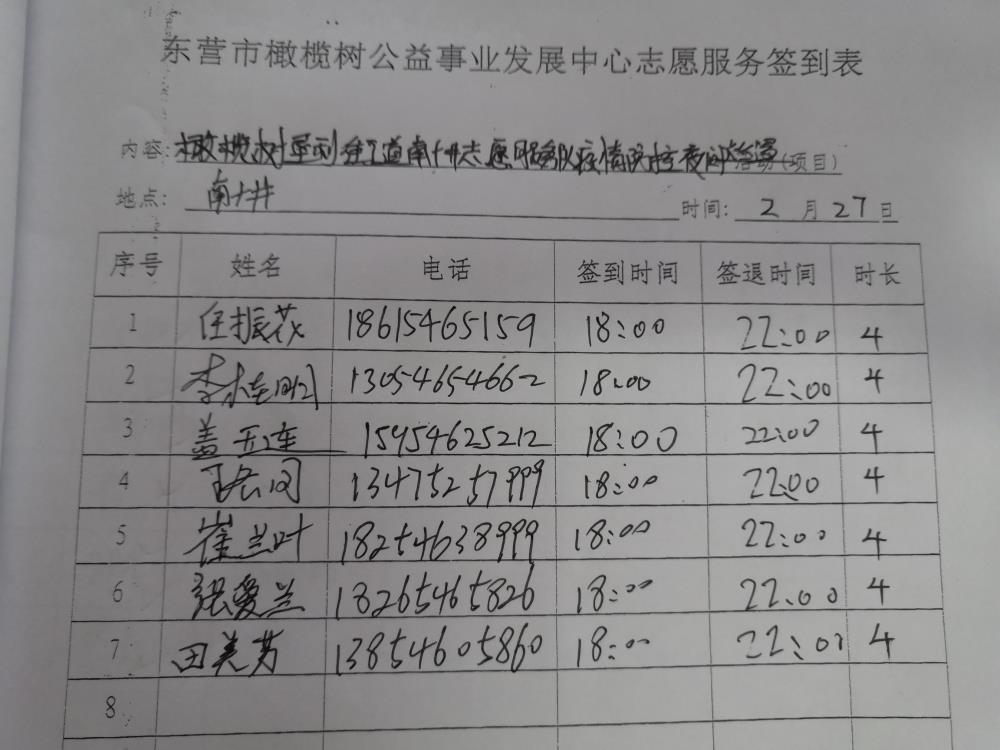 东营市橄榄树公益事业发展中心志愿服务签到表
内容:橄榄树垦利街道南十井志愿服务队疫情防控夜间 活动(项目)
地点: 南十井 时间: 2 月 27 日
序号 姓名 电话 签到时间 签退时间 时长
1 任振花 18615465159 18:00 22:00 4
2 李 13054654662 18:00 22:00 4
3 盖玉连 15954625212 18:00 22:00 4
4 13475257999 18:00 22:00 4
5 崔兰叶 18254638999 18:00 22:00 4
6 张爱兰 18265465826 18:00 22:00 4
7 田美芳 13854605860 18:00 22:00 4
8